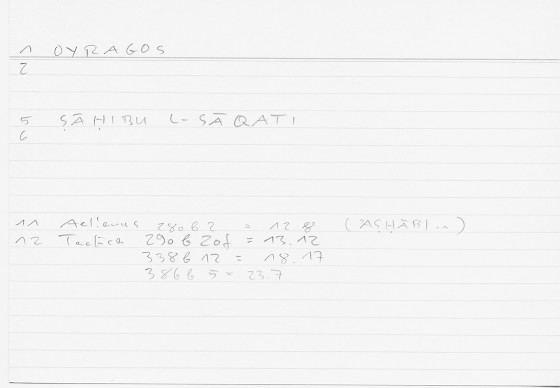 1 OYRAGOS
2
5 ṢĀḤIBU L-SĀQATI
6
11 Aelianus 280b2 = 12.8 (AṢḤĀBI..)
12 Tactica 290b20f = 13.12
338b12 = 18.17
386b5 = 23.7